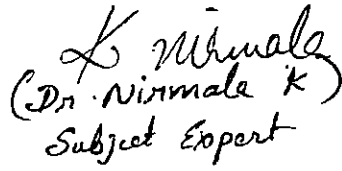 K Nirmala
(Dr. Nirmala K)
Subject Expert